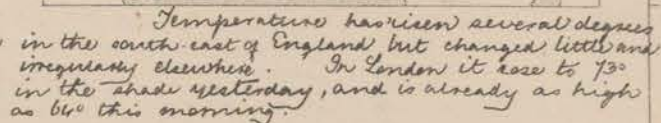 Temperature has risen several degrees
in the south-east of England but changed little and
irregularly elsewhere. In London it rose to 73°
in the shade yesterday, and is already as high
as 64° this morning.